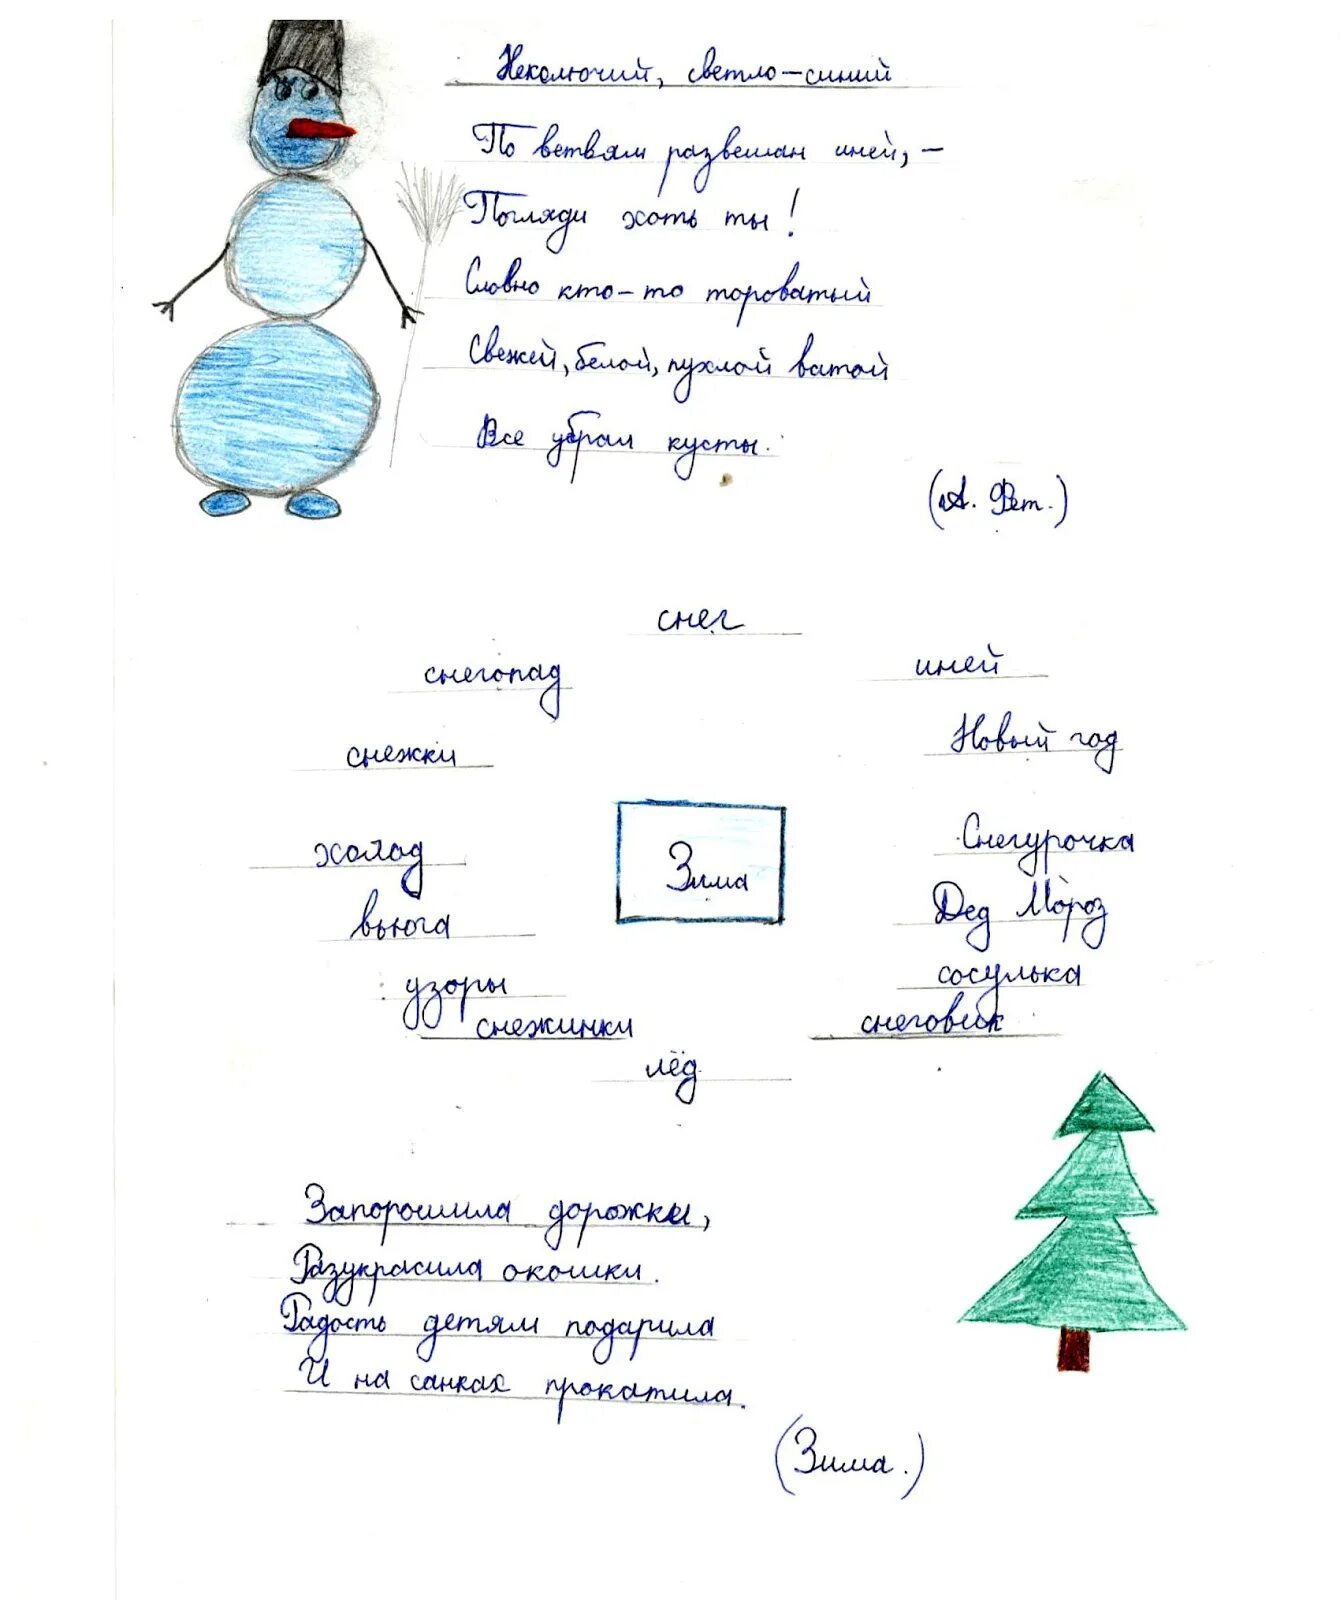 Неколючий, светло-синий
По ветвям развешан иней, -
Погляди хоть ты!
Словно кто-то тороватый
Свежей, белой, пухлой ватой
Все убрал кусты.
(А. Фет.)
снег
снегопад
иней
снежки
Новый год
холод
Зима
Снегурочка
вьюга
Дед Мороз
узоры
сосулька
снежинки
снеговик
лёд
Запорошила дорожки,
Разукрасила окошки.
Радость детям подарила
И на санках прокатила.
(Зима.)